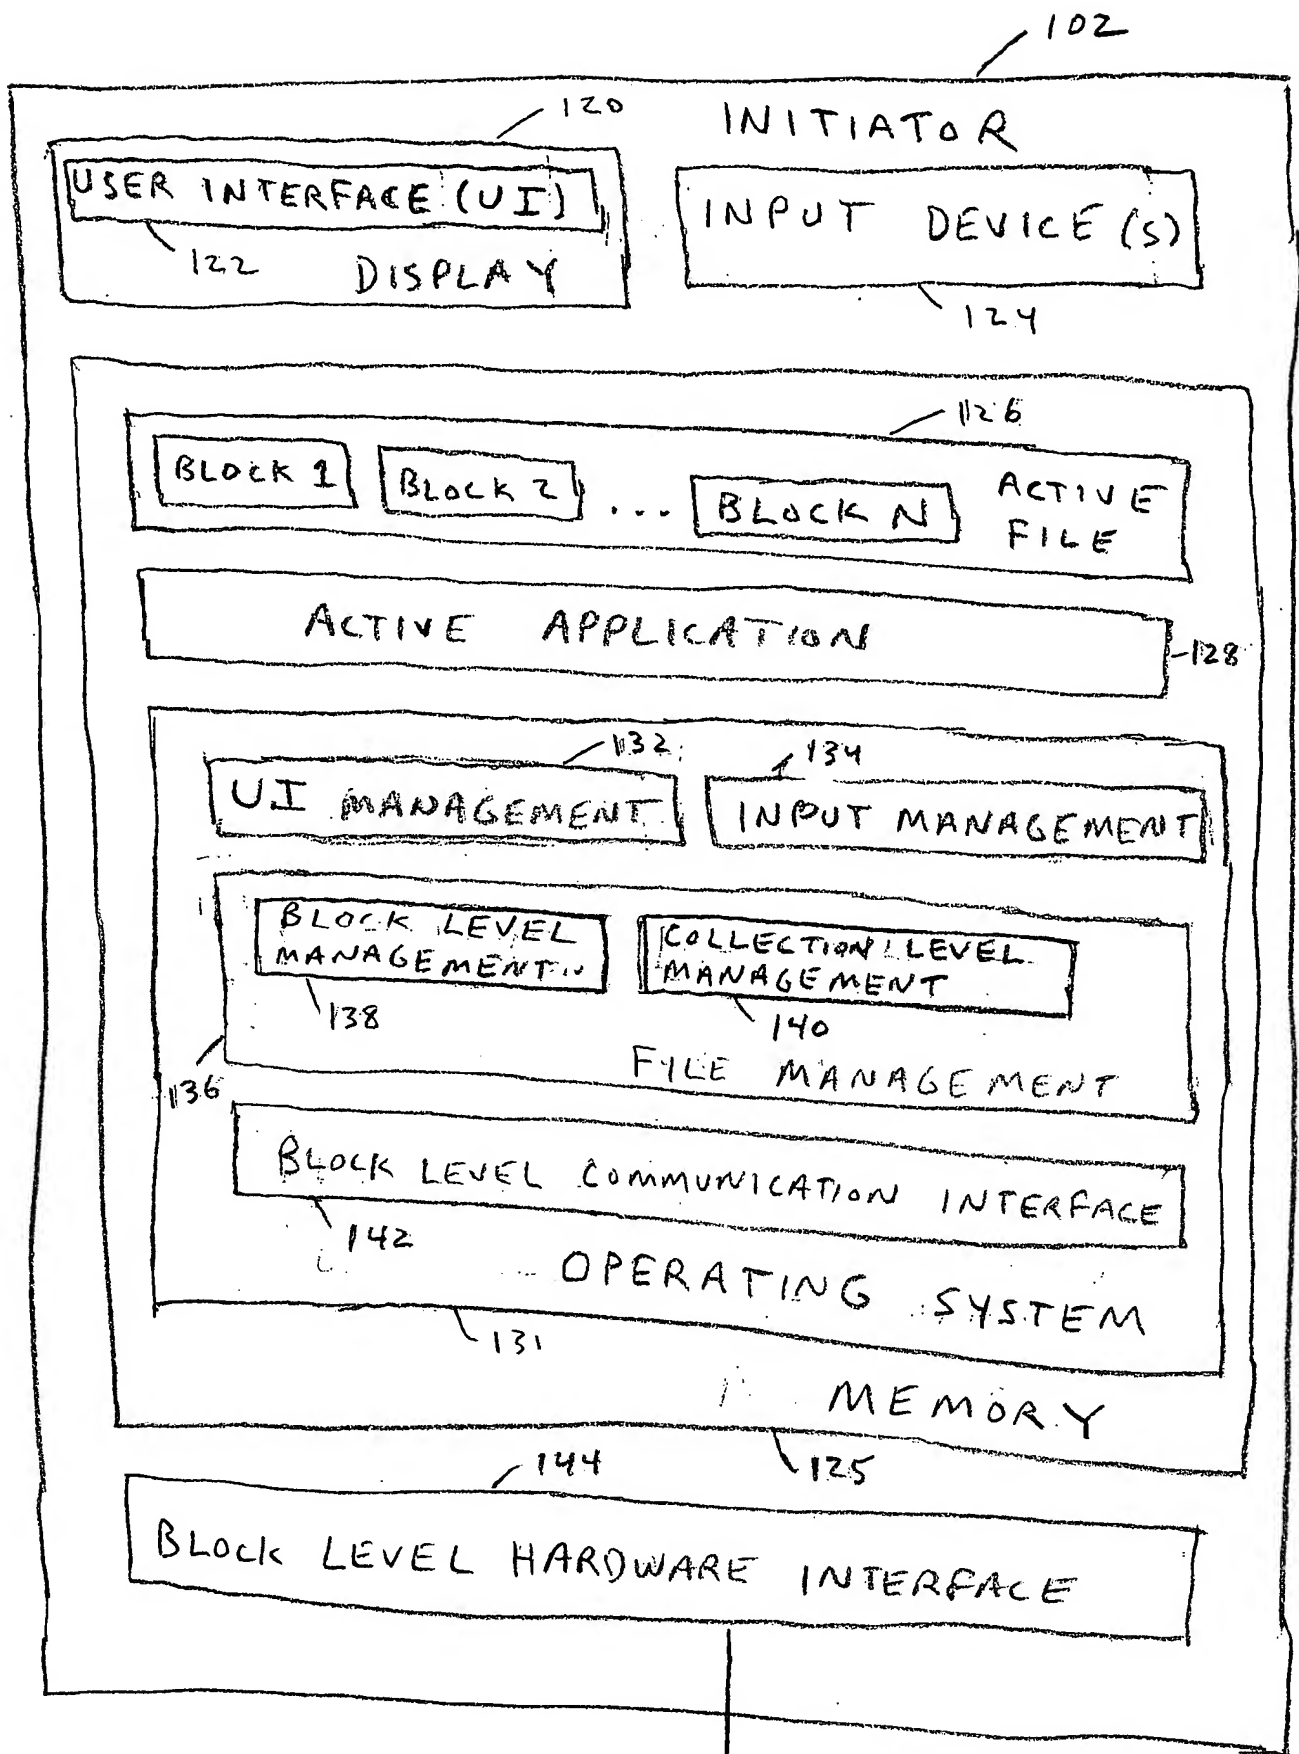 102
INITIATOR
120
USER INTERFACE (UI)
122
DISPLAY
INPUT DEVICE(S)
124
126
BLOCK 1
BLOCK 2
...
BLOCK N
ACTIVE
FILE
ACTIVE APPLICATION
128
132
UI MANAGEMENT
134
INPUT MANAGEMENT
BLOCK LEVEL
MANAGEMENT
138
COLLECTION LEVEL
MANAGEMENT
140
FILE MANAGEMENT
136
BLOCK LEVEL COMMUNICATION INTERFACE
142
OPERATING SYSTEM
131
MEMORY
125
144
BLOCK LEVEL HARDWARE INTERFACE